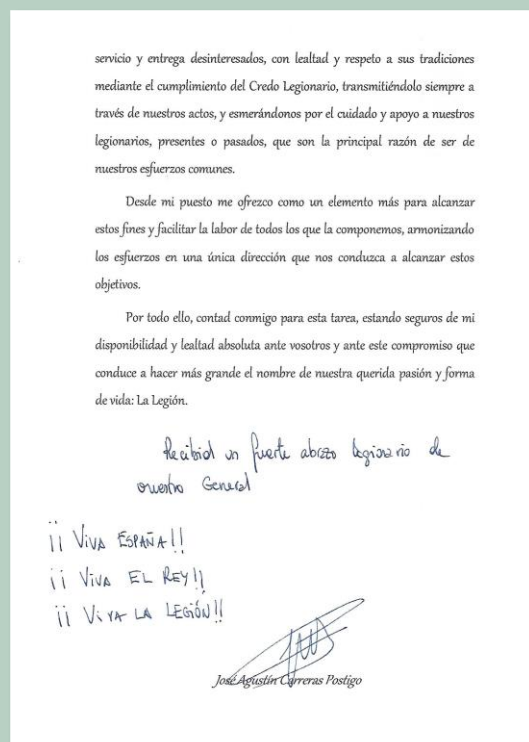 servicio y entrega desinteresados, con lealtad y respeto a sus tradiciones
mediante el cumplimiento del Credo Legionario, transmitiéndolo siempre a
través de nuestros actos, y esmerándonos por el cuidado y apoyo a nuestros
legionarios, presentes o pasados, que son la principal razón de ser de
nuestros esfuerzos comunes.
Desde mi puesto me ofrezco como un elemento más para alcanzar
estos fines y facilitar la labor de todos los que la componemos, armonizando
los esfuerzos en una única dirección que nos conduzca a alcanzar estos
objetivos.
Por todo ello, contad conmigo para esta tarea, estando seguros de mi
disponibilidad y lealtad absoluta ante vosotros y ante este compromiso que
conduce a hacer más grande el nombre de nuestra querida pasión y forma
de vida: La Legión.
Recibid un fuerte abrazo legionario de
vuestro General
¡¡ VIVA ESPAÑA!!
¡¡ VIVA EL REY!!
¡¡ VIVA LA LEGIÓN!!
José Agustín Carreras Postigo